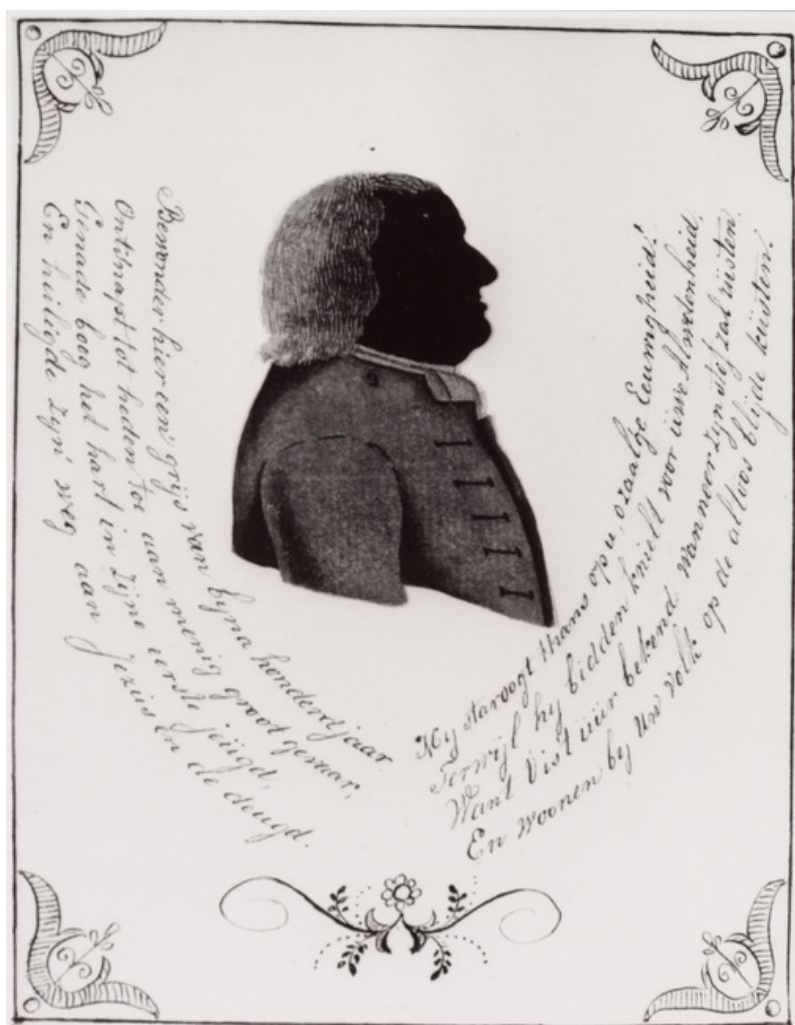 Bewonder hier een grijs van byna honderd jaar
Ontsnapt tot heden toe aan menig groot gevaar,
Genade boog het hart in zijne eerste jeügd,
En heiligde zyn' weg aan Jezüs en de deugd.
Hy staroogt thans op u, o zaalge Eeuwigheid!
Terwijl hy bidden knielt voor üwe Alwetenheid,
Want 't is t üür bekend wanneer zyn stof zal rüsten,
En woonen by Uw volk op de altoos blijde küsten.